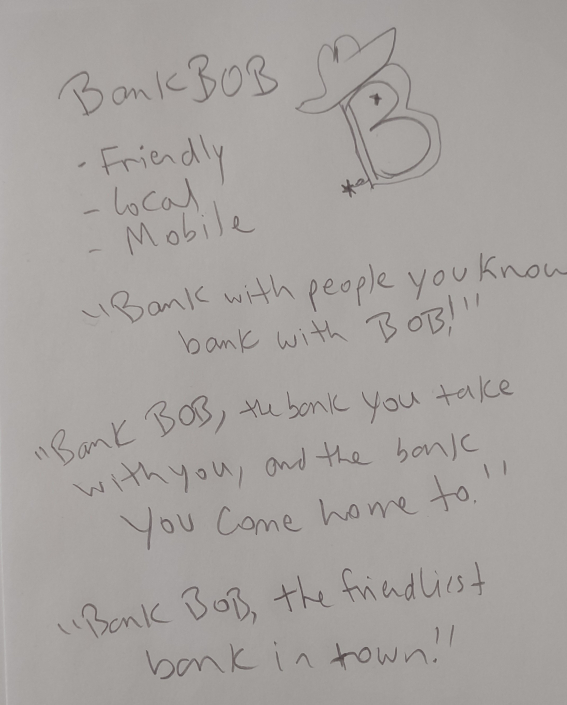 Bank BOB
B
- Friendly
- Local
- Mobile
"Bank with people you know
bank with BOB!"
"Bank BOB, the bank you take
with you, and the bank
you come home to."
"Bank BOB, the friendliest
bank in town."